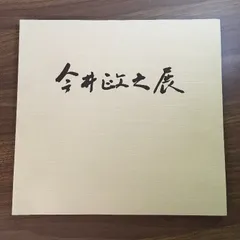 今井政之展